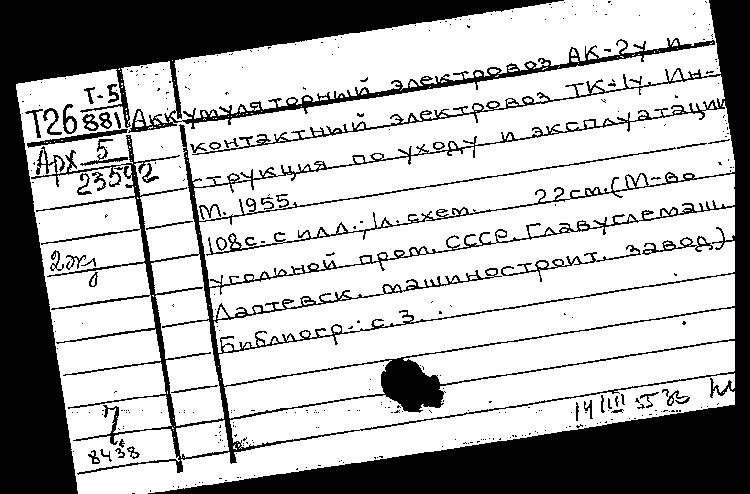 Т-5
Т26 881 Аккумуляторный электровоз АК-2у и
контактный электровоз ТК-1у. Ин-
Арх 5
23592
струкция по уходу и эксплуатации
М., 1955.
108с. с илл.; 1л. схем. 22см. (М-во
2 экз
угольной пром. СССР. Главуглемаш.
Лаптевск. машиностроит. завод).
Библиогр.: с. 3.
7
8438
14 III 55